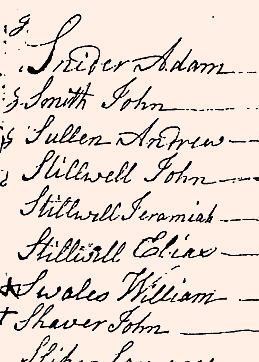 Snider Adam
Smith John
Sullen Andrew
Stillwell John
Stillwell Jeramiah
Stillwell Elias
Swales William
Shaver John